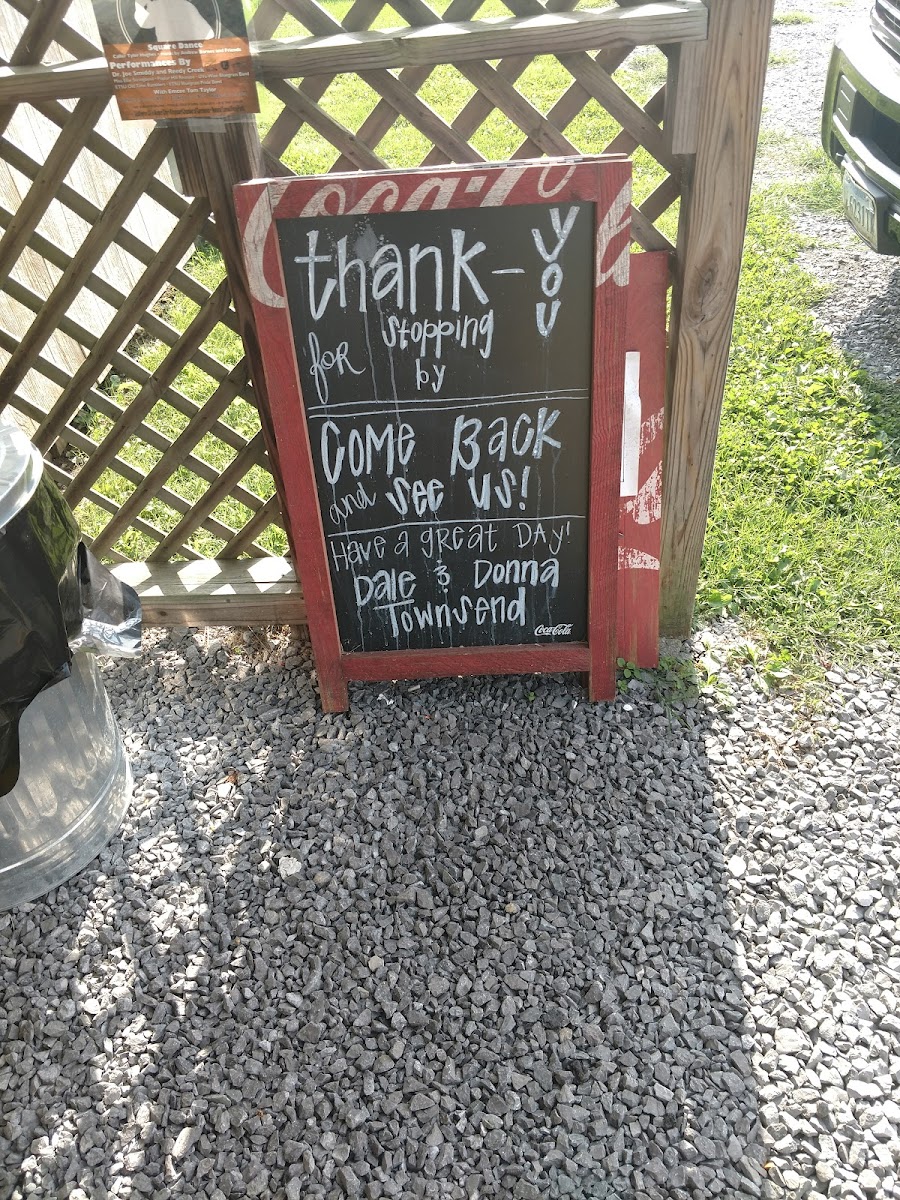 Square Dance
Performances By
Dr. Joe Smiddy and Reedy Creek
With Emcee Tom Taylor
Coca-Co
thank-you
for stopping
by
Come Back
and see us!
Have a great Day!
Dale & Donna
Townsend
Coca-Cola